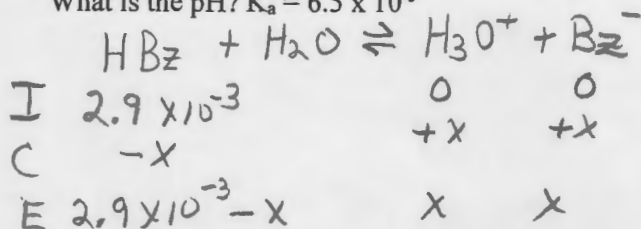 What is the pH? Kₐ = 6.5 x 10
HBz + H₂O ⇌ H₃O⁺ + Bz⁻
I 2.9 x10⁻³ 0 0
C -x +x +x
E 2.9 x10⁻³ - x x x